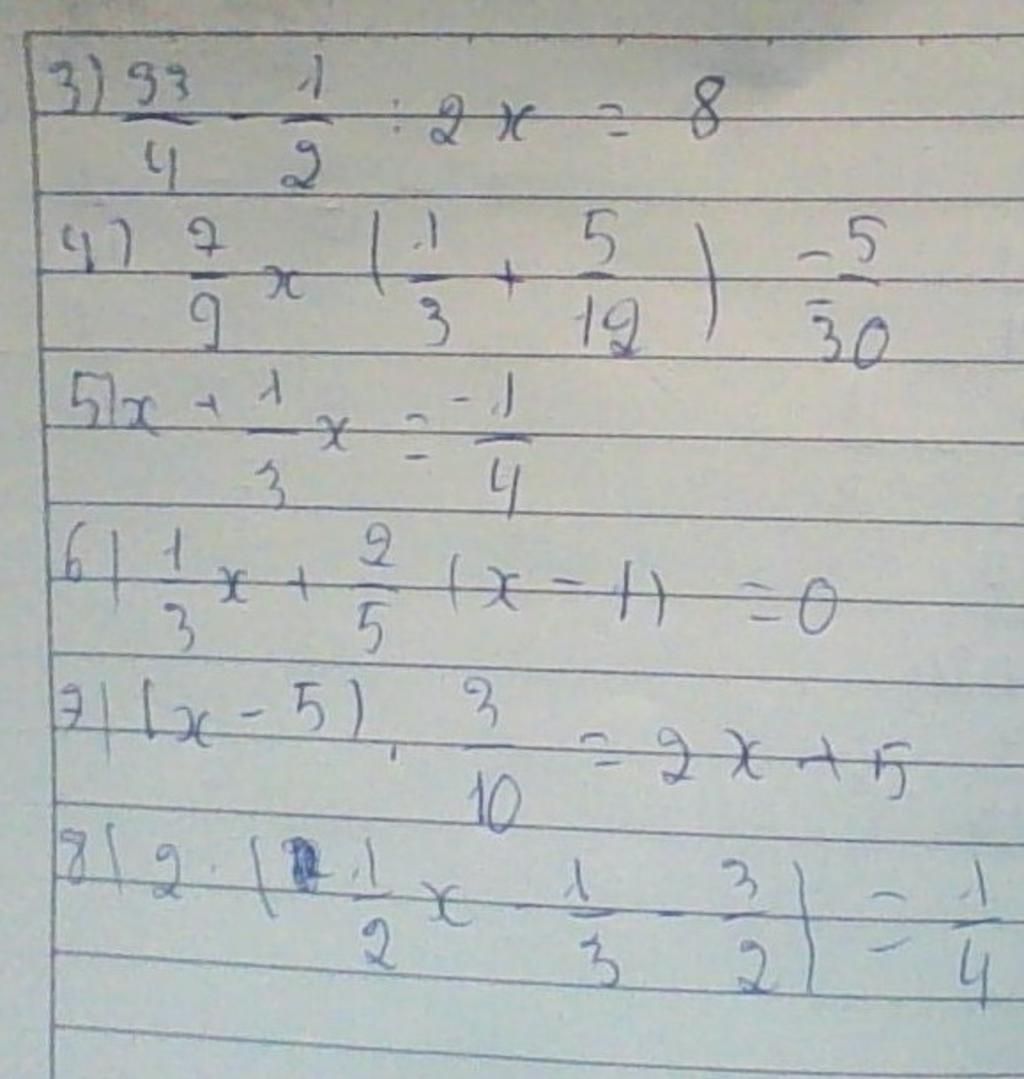 3) 33/4 - 1/2 : 2x = 8
4) 7/9 x (1/3 + 5/12) -5/30
5) x + 1/3 x = -1/4
6) 1/3 x + 2/5 (x - 1) = 0
7) (x - 5) . 3/10 = 2x + 5
8) 2 . (1/2 x - 1/3 - 3/2) = 1/4